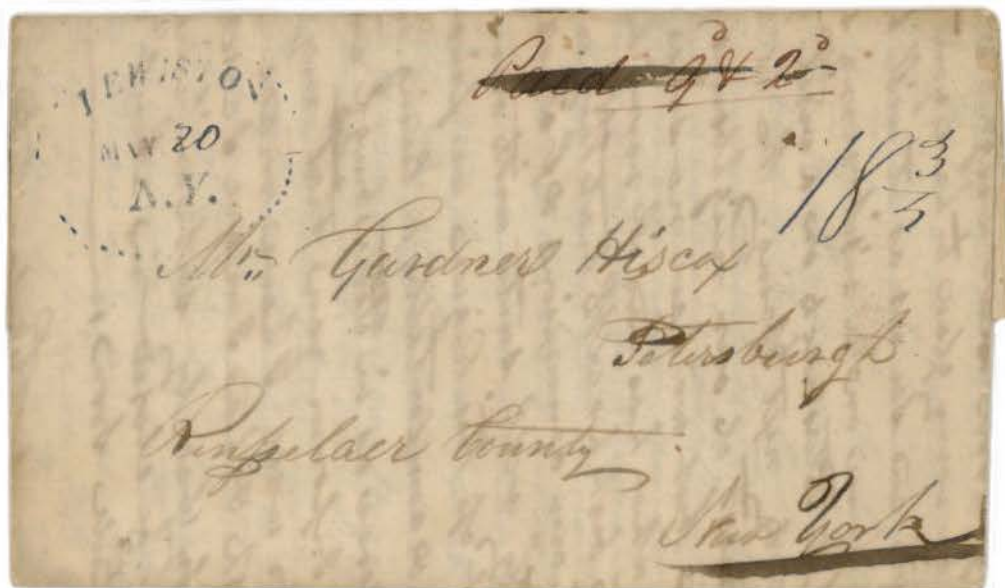 LEWISTON
MAY 20
N.Y.
Paid 9d & 2d
18 3/4
Mr. Gardner Hiscox
Petersburgh
Rensselaer County
New York